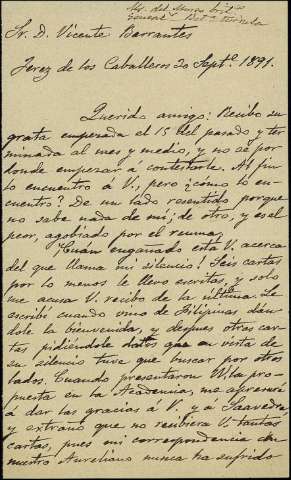 Sr. D. Vicente Barrantes
Jerez de los Caballeros 20 Septe. 1891.
Querido amigo: Recibo su
grata empezada el 15 del pasado y ter
minada al mes y medio, y no sé por
donde empezar á contestarle. Al fin
lo encuentro á V., pero ¿cómo lo en-
cuentro? De un lado resentido porque
no sabe nada de mi; de otro, y es el
peor, agobiado por el reuma.
¡Cuán engañado está V. acerca
del que llama mi silencio! Seis cartas
por lo menos le llevo escritas, y solo
me acusa V. recibo de la última. Le
escribí cuando vino de Filipinas dan
dole la bienvenida, y despues otras car
tas pidiéndole datos que en vista de
su silencio tuve que buscar por otros
lados. Cuando presentaron la pro-
puesta en la Academia, me apresuré
á dar las gracias á V. y á Saavedra,
y extraño que no recibiera V. tantas
cartas, pues mi correspondencia con
nuestro Aureliano nunca ha sufrido